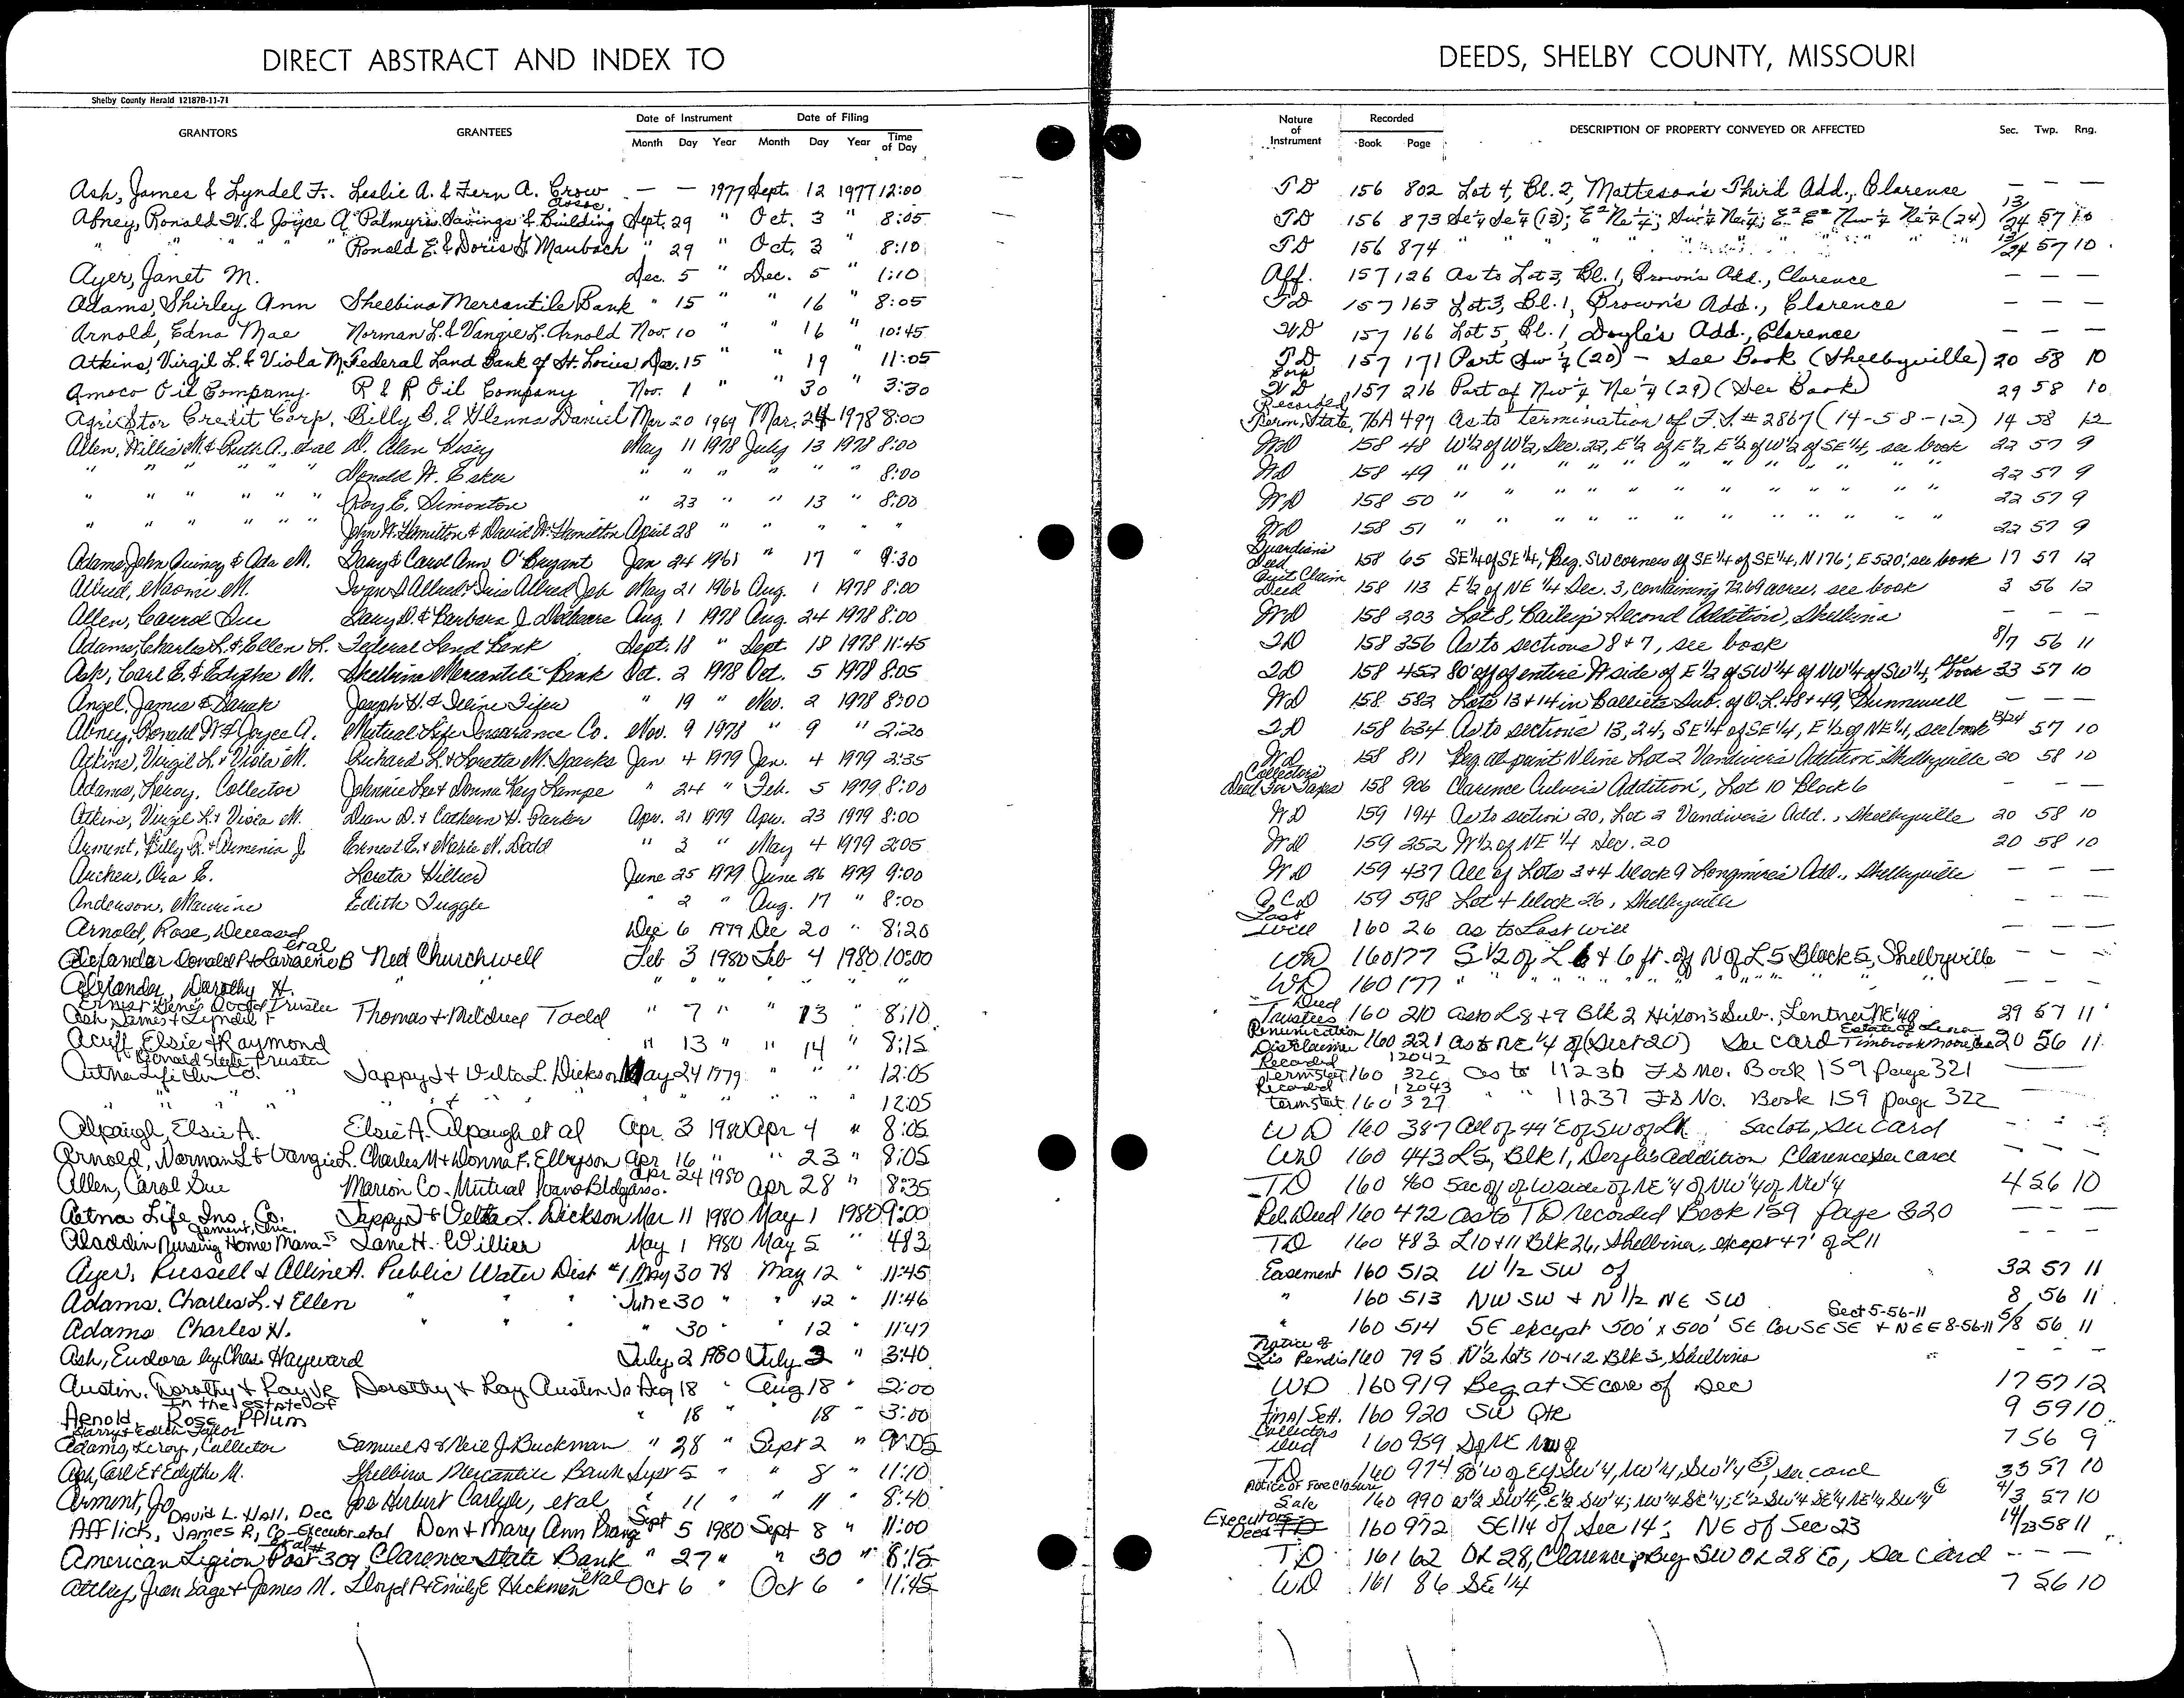 DIRECT ABSTRACT AND INDEX TO
Shelby County Herald 12187B-11-71
GRANTORS GRANTEES Date of Instrument Date of Filing
Month Day Year Month Day Year Time of Day
Ash, James & Lyndel F. Leslie A. & Fern A. Crow — — 1977 Sept. 12 1977 12:00
Abney, Ronald W. & Joyce A. Palmyra Savings & Building Assoc. Sept. 29 " Oct. 3 " 8:05
" " " " " Ronald E. & Doris H. Maubach " 29 " Oct. 3 " 8:10
Ayer, Janet M. Dec. 5 " Dec. 5 " 1:10
Adams, Shirley Ann Shelbina Mercantile Bank " 15 " " 16 " 8:05
Arnold, Edna Mae Norman L. & Vangie L. Arnold Nov. 10 " " 16 " 10:45
Atkins, Virgil L. & Viola M. Federal Land Bank of St. Louis Dec. 15 " " 19 " 11:05
Amoco Oil Company R & R Oil Company Nov. 1 " " 30 " 3:30
Agristor Credit Corp. Billy B. & Glenna Daniel Mar 20 1969 Mar. 24 1978 8:00
Allen, Willis M. & Ruth A., et al D. Alan May 11 1978 July 13 1978 8:00
" " " " " Donald W. " " " " " " 8:00
" " " " " Roy E. Simonton " 23 " " 13 " 8:00
" " " " " John W. Hamilton & David W. Hamilton April 28 " " " " "
Adams, John Quincy & Ada M. Gary & Carol Ann O'Bryant Jan 24 1961 " 17 " 9:30
Allred, Naomi M. May 21 1966 Aug. 1 1978 8:00
Allen, Carrol Sue Gary D. & Barbara J. Aug. 1 1978 Aug. 24 1978 8:00
Adams, Charles L. & Ellen L. Federal Land Bank Sept. 18 " Sept. 18 1978 11:45
Ash, Carl E. & Edythe M. Shelbina Mercantile Bank Oct. 2 1978 Oct. 5 1978 8:05
Angel, James & Joseph H. & " 19 " Nov. 2 1978 8:00
Abney, Ronald W. & Joyce A. Mutual Life Insurance Co. Nov. 9 1978 " 9 " 2:20
Atkins, Virgil L. & Viola M. Richard L. & Loretta M. Sparks Jan 4 1979 Jan. 4 1979 2:35
Adams, Leroy, Collector Johnnie Lee & Donna Kay Lampe " 24 " Feb. 5 1979 8:00
Atkins, Virgil L. & Viola M. Dean D. & Cathern H. Parker Apr. 21 1979 Apr. 23 1979 8:00
Arment, Billy R. & Armenia J. Ernest E. & N. Dodd " 3 " May 4 1979 2:05
Ora E. Loreta Hillier June 25 1979 June 26 1979 9:00
Anderson, Maurine Edith Tuggle " 2 " Aug. 17 " 8:00
Arnold, Rose, Deceased Dec 6 1979 Dec 20 " 8:20
Alexander Donald P. & Lorraine B et al Ned Churchwell Feb 3 1980 Feb 4 1980 10:00
Alexander, Dorothy H. " " " " " " " "
Ernest Gene Dodd Trustee
Ash James & Lyndel F Thomas & Mildred Todd " 7 " " 13 " 8:10
Acuff, Elsie & Raymond " 13 " " 14 " 8:15
Donald Steele Trustee
Aetna Life Ins Co. Jappy J & Velta L. Dickson May 24 1979 " " " 12:05
" " " " " " " " " " " 12:05
Alpaugh, Elsie A. Elsie A. Alpaugh et al Apr. 3 1980 Apr 4 " 8:05
Arnold, Norman L & Vangie L. Charles M & Donna F. Ellryson Apr 16 " " 23 " 8:05
Allen, Carol Sue Marion Co. Mutual Loan & Bldg Asso. Apr 24 1980 Apr 28 " 8:35
Aetna Life Ins. Co. Jappy J & Velta L. Dickson Mar 11 1980 May 1 1980 9:00
Aladdin Nursing Home Management, Inc. Jane H. Willier May 1 1980 May 5 " 483
Ayer, Russell & Alline A. Public Water Dist #1 May 30 78 May 12 " 11:45
Adams, Charles L. & Ellen " " " June 30 " " 12 " 11:46
Adams Charles H. " " " " 30 " " 12 " 11:47
Ash, Eudora by Chas. Hayward July 2 1980 July 2 " 3:40
Austin, Dorothy & Ray Jr Dorothy & Ray Austin Jr Aug 18 " Aug 18 " 2:00
In the estate of
Arnold, Rose Pflum " 18 " 18 " 3:00
Harry & Edith Taylor
Adams, Leroy, Collector Samuel A & Neil J. Buckman " 28 " Sept 2 " 9:05
Ash, Carl E & Edythe M. Shelbina Mercantile Bank Sept 5 " " 8 " 11:10
Arment, Jo Joe Herbert Carlyle, et al " 11 " " 11 " 8:40
David L. Hall, Dec
Afflick, James R, Co-Executor et al Don & Mary Ann Prange Sept 5 1980 Sept 8 " 11:00
American Legion Post 309 et al Clarence State Bank " 27 " " 30 " 8:15
Attley, Jean Gage & James M. Lloyd P & Emily E Hickman et al Oct 6 " Oct 6 " 11:45
DEEDS, SHELBY COUNTY, MISSOURI
Nature of Instrument Recorded Book Page DESCRIPTION OF PROPERTY CONVEYED OR AFFECTED Sec. Twp. Rng.
TD 156 802 Lot 4, Bl. 2, Matteson's Third Add., Clarence — — —
TD 156 873 Se¼ Se¼ (13); E² Ne¼; Sw¼ Ne¼; E² E² Nw¼ Ne¼ (24) 13/24 57 10
TD 156 874 " " " " " " " " 13/24 57 10
Aff. 157 126 As to Lot 3, Bl. 1, Brown's Add., Clarence — — —
TD 157 163 Lot 3, Bl. 1, Brown's Add., Clarence — — —
WD 157 166 Lot 5, Bl. 1, Doyle's Add., Clarence — — —
TD 157 171 Part Sw¼ (20) — See Book (Shelbyville) 20 58 10
Corp WD 157 216 Part of Nw¼ Ne¼ (29) (See Book) 29 58 10
Recorded Term, State, 76A 497 As to termination of F.S. # 2867 (14-58-12) 14 58 12
WD 158 48 W½ of W½, Sec. 22, E½ of E½, E½ of W½ of SE¼, see book 22 57 9
WD 158 49 " " " " " " " " " " 22 57 9
WD 158 50 " " " " " " " " " " 22 57 9
WD 158 51 " " " " " " " " " " 22 57 9
Guardian's Deed 158 65 SE¼ of SE¼, Beg. SW corner of SE¼ of SE¼, N 176', E 520', see book 17 57 12
Quit Claim Deed 158 113 E½ of NE¼ Sec. 3, containing 72.69 acres, see book 3 56 12
WD 158 203 Lot 8, Bailey's Second Addition, Shelbina — — —
TD 158 356 As to sections 8 + 7, see book 8/7 56 11
TD 158 452 80' off of entire W side of E½ of SW¼ of NW¼ of SW¼, see book 33 57 10
WD 158 582 Lots 13 + 14 in Balliets Sub. of O.L. 48 + 49, Hunnewell — — —
TD 158 634 As to sections 13, 24, SE¼ of SE¼, E½ of NE¼, see book 13/24 57 10
WD 158 811 Beg. at point N line Lot 2 Vandivers Addition Shelbyville 20 58 10
Collectors Deed For Taxes 158 906 Clarence Culver's Addition, Lot 10 Block 6 — — —
WD 159 194 As to section 20, Lot 2 Vandivers Add., Shelbyville 20 58 10
WD 159 252 W½ of NE¼ Sec. 20 20 58 10
WD 159 437 All of Lots 3 + 4 block 9 Longmire's Add., Shelbyville — — —
Q.C.D 159 598 Lot 4 block 26, Shelbyville — — —
Last Will 160 26 as to Last will — — —
WD 160 177 S ½ of L 6 + 6 ft. of N of L 5 Block 5, Shelbyville — — —
WD 160 177 " " " " " " " " " — — —
Trustees Deed 160 210 as to L 8 + 9 Blk 2 Hixon's Sub., Lentner NE¼ 29 57 11
Renunciation Disclaimer 160 221 as to NE¼ of (Sect 20) See card Estate of Lena Timbrook Moore 20 56 11
Recorded term stat. 160 326 12042 as to 11236 FS No. Book 159 page 321
Recorded term stat. 160 327 12043 " " 11237 FS No. Book 159 page 322
WD 160 387 All of 44' E of SW of Lk Sac lot, see card — — —
WD 160 443 L5, Blk 1, Doyles Addition Clarence see card — — —
TD 160 460 5ac off of W side of NE¼ of NW¼ of NW¼ 4 56 10
Rel. Deed 160 472 as to TD recorded Book 159 page 320 — — —
TD 160 483 L10 + 11 Blk 26, Shelbina, except 47' of L11 — — —
Easement 160 512 W ½ SW of 32 57 11
" 160 513 NW SW + N ½ NE SW 8 56 11
" 160 514 SE except 500' x 500' SE Cor SE SE Sect 5-56-11 + NE E 8-56-11 5/8 56 11
Notice of Lis Pendis 160 795 N½ lots 10 + 12 Blk 3, Shelbina — — —
WD 160 919 Beg at SE core of sec 17 57 12
Final Sett. 160 920 SW Qtr 9 59 10
Collectors Deed 160 959 7 56 9
TD 160 974 80' W of E½ SW¼, NW¼, SW¼, see card 33 57 10
Notice of Foreclosure Sale 160 990 W½ SW¼; E½ SW¼; NW¼ SE¼; E½ SW¼ SE¼ NE¼ SW¼ 4/3 57 10
Executors Deed 160 972 SE 1/4 of Sec 14; NE of Sec 23 14/23 58 11
TD 161 62 OL 28, Clarence, Beg SW OL 28 E, see card — — —
WD 161 86 SE ¼ 7 56 10